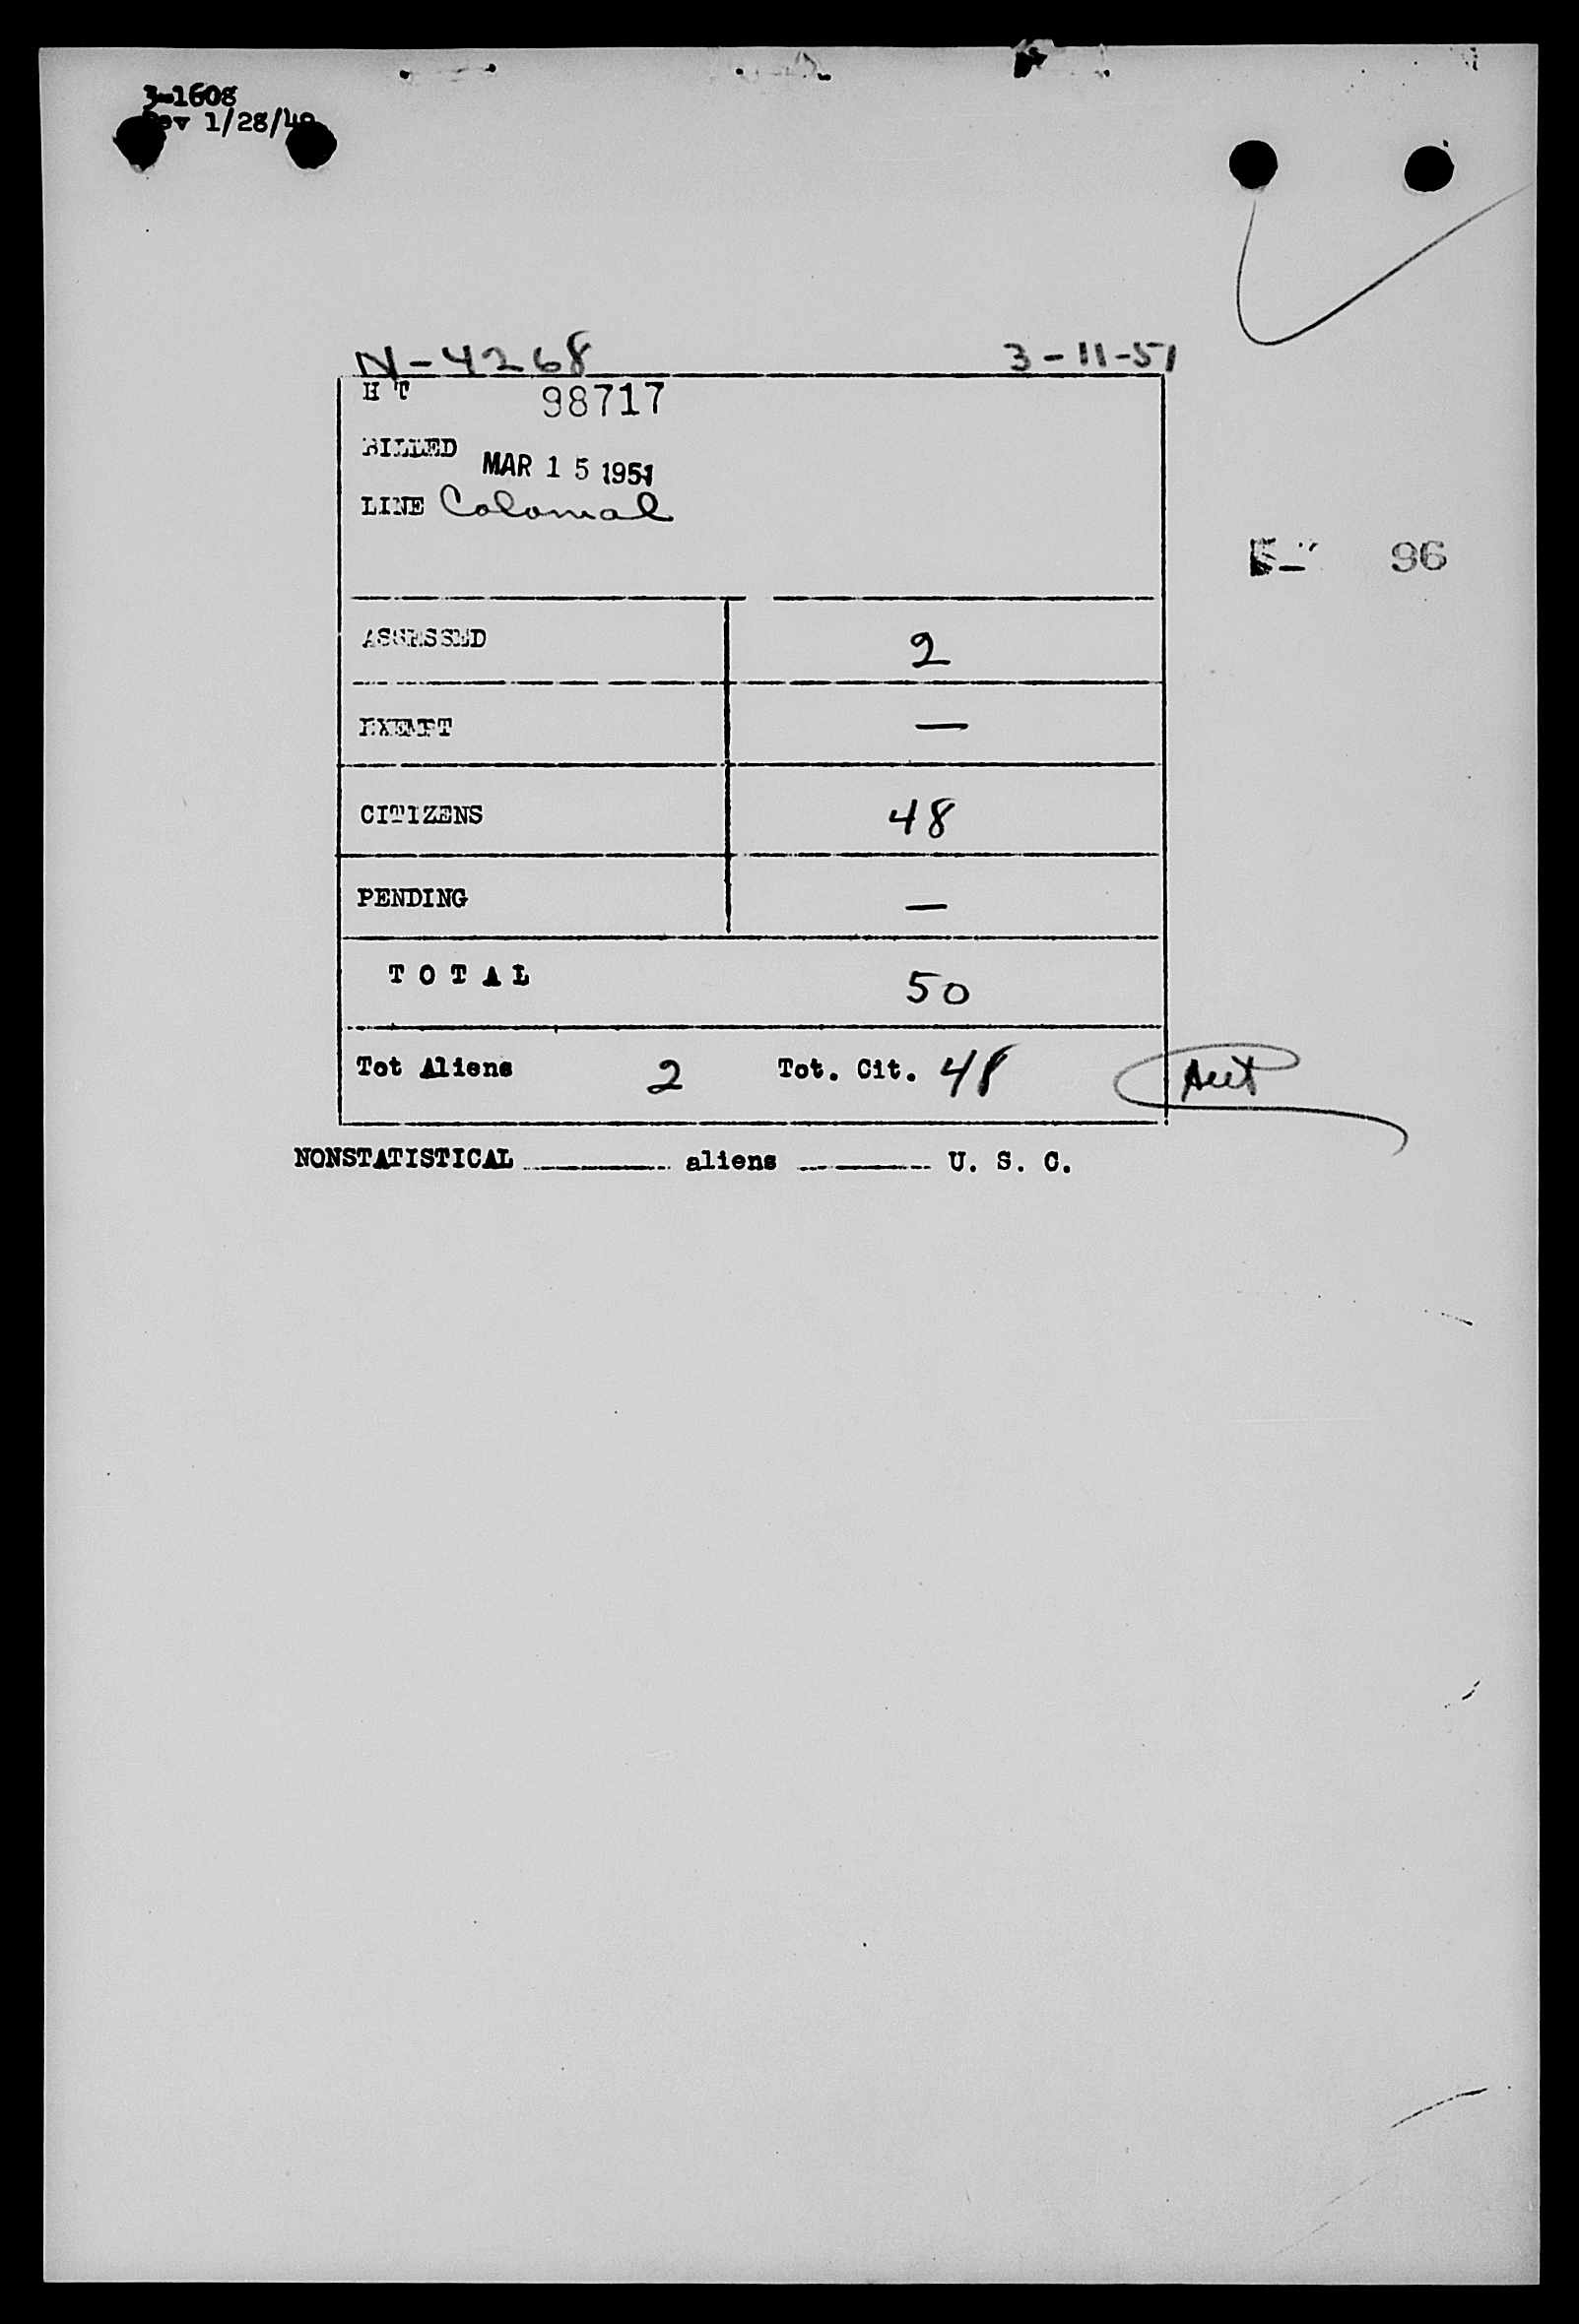 3-1608
Rev 1/28/49
N-4268 3-11-51
H T 98717
BILLED MAR 15 1951
LINE Colonial
96
ASSESSED 2
EXEMPT —
CITIZENS 48
PENDING —
TOTAL 50
Tot Aliens 2 Tot. Cit. 48
NONSTATISTICAL ______ aliens ______ U. S. C.